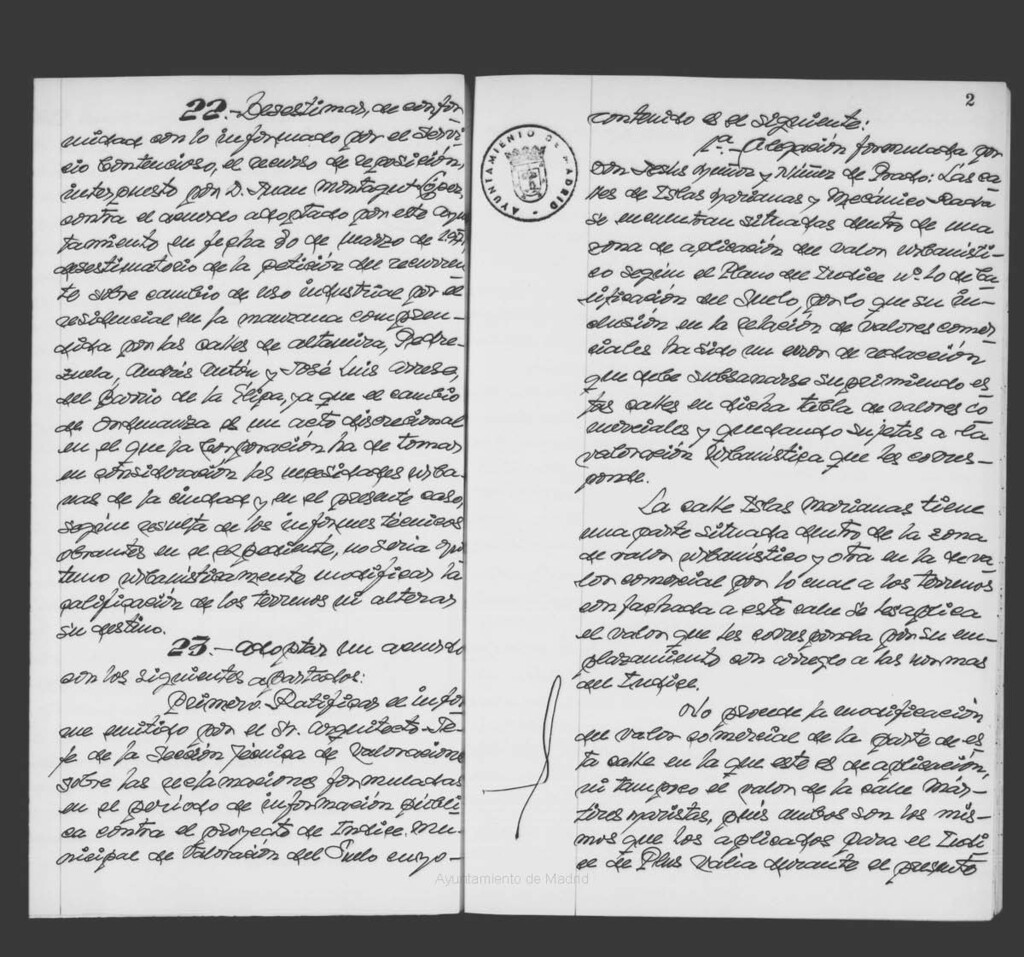 22.- Desestimar, de confor
midad con lo informado por el Servi
cio Contencioso, el recurso de reposición,
interpuesto por D. Juan Montagut López,
contra el acuerdo adoptado por este Ayun
tamiento en fecha 30 de marzo de
desestimatorio de la petición del recurren
te sobre cambio de uso industrial por el
residencial en la manzana compren-
dida por las calles de Altamira, Pedre-
zuela, Andrés Antón y José Luis Arrese,
del Barrio de la Elipa, ya que el cambio
de Ordenanza es un acto discrecional
en el que la Corporación ha de tomar
en consideración las necesidades urba-
nas de la ciudad y en el presente caso,
según resulta de los informes técnicos
obrantes en el expediente, no sería opor
tuno urbanísticamente modificar la
calificación de los terrenos ni alterar
su destino.
23.- Adoptar un acuerdo
con los siguientes apartados:
Primero. Ratificar el infor
me emitido por el Sr. Arquitecto Je-
fe de la Sección Técnica de Valoraciones
sobre las reclamaciones formuladas
en el período de información públi
ca contra el proyecto de Indice Mu-
nicipal de Valoración del Suelo cuyo-
2
AYUNTAMIENTO DE MADRID
contenido es el siguiente:
1ª.- Alegación formulada por
don Jesús Muñoz y Núñez de Prado: Las ca
lles de Islas Marianas y Mecánico Rada
se encuentran situadas dentro de una
zona de aplicación de valor urbanísti-
co según el Plano del Indice nº 10 de Ca
lificación del Suelo, por lo que su in-
clusión en la relación de valores comer
ciales ha sido un error de redacción
que debe subsanarse suprimiendo es
tas calles en dicha tabla de valores co
merciales y quedando sujetas a la
valoración urbanística que les corres-
ponde.
La calle Islas Marianas tiene
una parte situada dentro de la zona
de valor urbanístico y otra en la de va
lor comercial por lo cual a los terrenos
con fachada a esta calle se les aplica
el valor que les corresponda por su em-
plazamiento con arreglo a las normas
del Indice.
No procede la modificación
del valor comercial de la parte de es
ta calle en la que este es de aplicación,
ni tampoco el valor de la calle Már-
tires Maristas, pues ambos son los mis-
mos que los aplicados para el Indi
ce de Plus Valía durante el presente
Ayuntamiento de Madrid